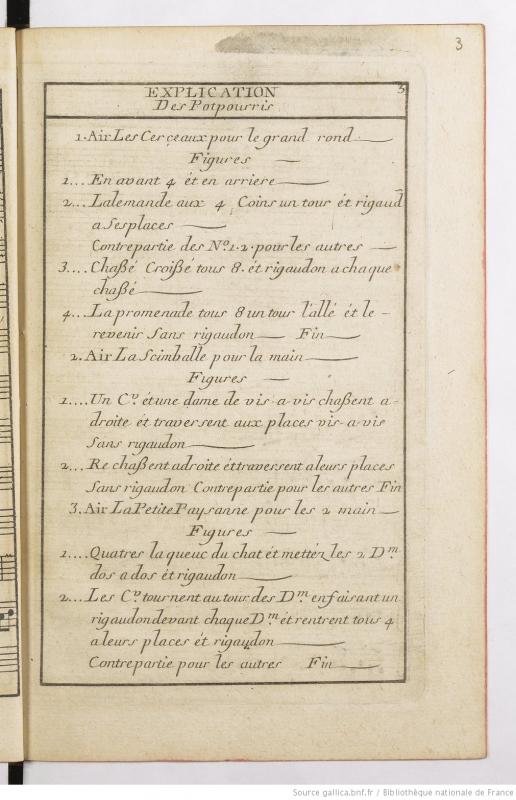 3
EXPLICATION
Des Potpourris
3
1. Air Les Cerçeaux pour le grand rond
Figures
1... En avant 4 ét en arriere
2... Lalemande aux 4 Coins un tour ét rigaud
a Ses places
Contrepartie des Nos 1. 2. pour les autres
3... Chaßé Croißé tous 8. ét rigaudon a chaque
chaßé
4... La promenade tous 8 un tour l'allé ét le
revenir Sans rigaudon Fin
2. Air La Scimballe pour la main
Figures
1.... Un Cer ét une dame de vis-a-vis chaßent a
droite ét traversent aux places vis-a-vis
Sans rigaudon
2... Re chaßent adroite ét traversent a leurs places
Sans rigaudon Contrepartie pour les autres Fin
3. Air La Petite Paysanne pour les 2 main
Figures
1.... Quatres la queue du chat ét mettéz les 2 Dm.
dos a dos ét rigaudon
2... Les Crs tournent au tour des Dm. en faisant un
rigaudon devant chaque Dm. ét rentrent tous 4
a leurs places ét rigaudon
Contrepartie pour les autres Fin
Source gallica.bnf.fr / Bibliothèque nationale de France